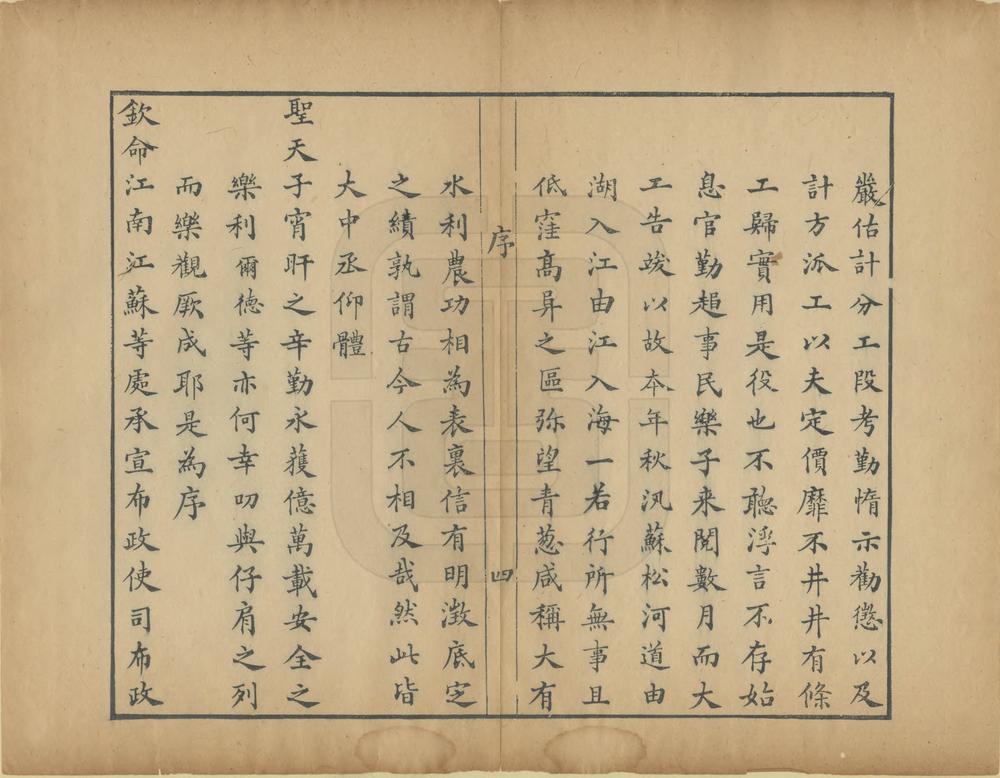 嚴估計分工段考勤惰示勸懲以及
計方派工以夫定價靡不井井有條
工歸實用是役也不聽浮言不存始
息官勤趨事民樂子来閱數月而大
工告竣以故本年秋汛蘇松河道由
湖入江由江入海一若行所無事且
低窪高异之區弥望青葱咸稱大有
序
四
水利農功相為表裏信有明澂底定
之績孰謂古今人不相及哉然此皆
大中丞仰體
聖天子宵旰之辛勤永蒦億萬載安全之
樂利爾德等亦何幸叨與仔肩之列
而樂觀厥成耶是為序
欽命江南江蘇等處承宣布政使司布政